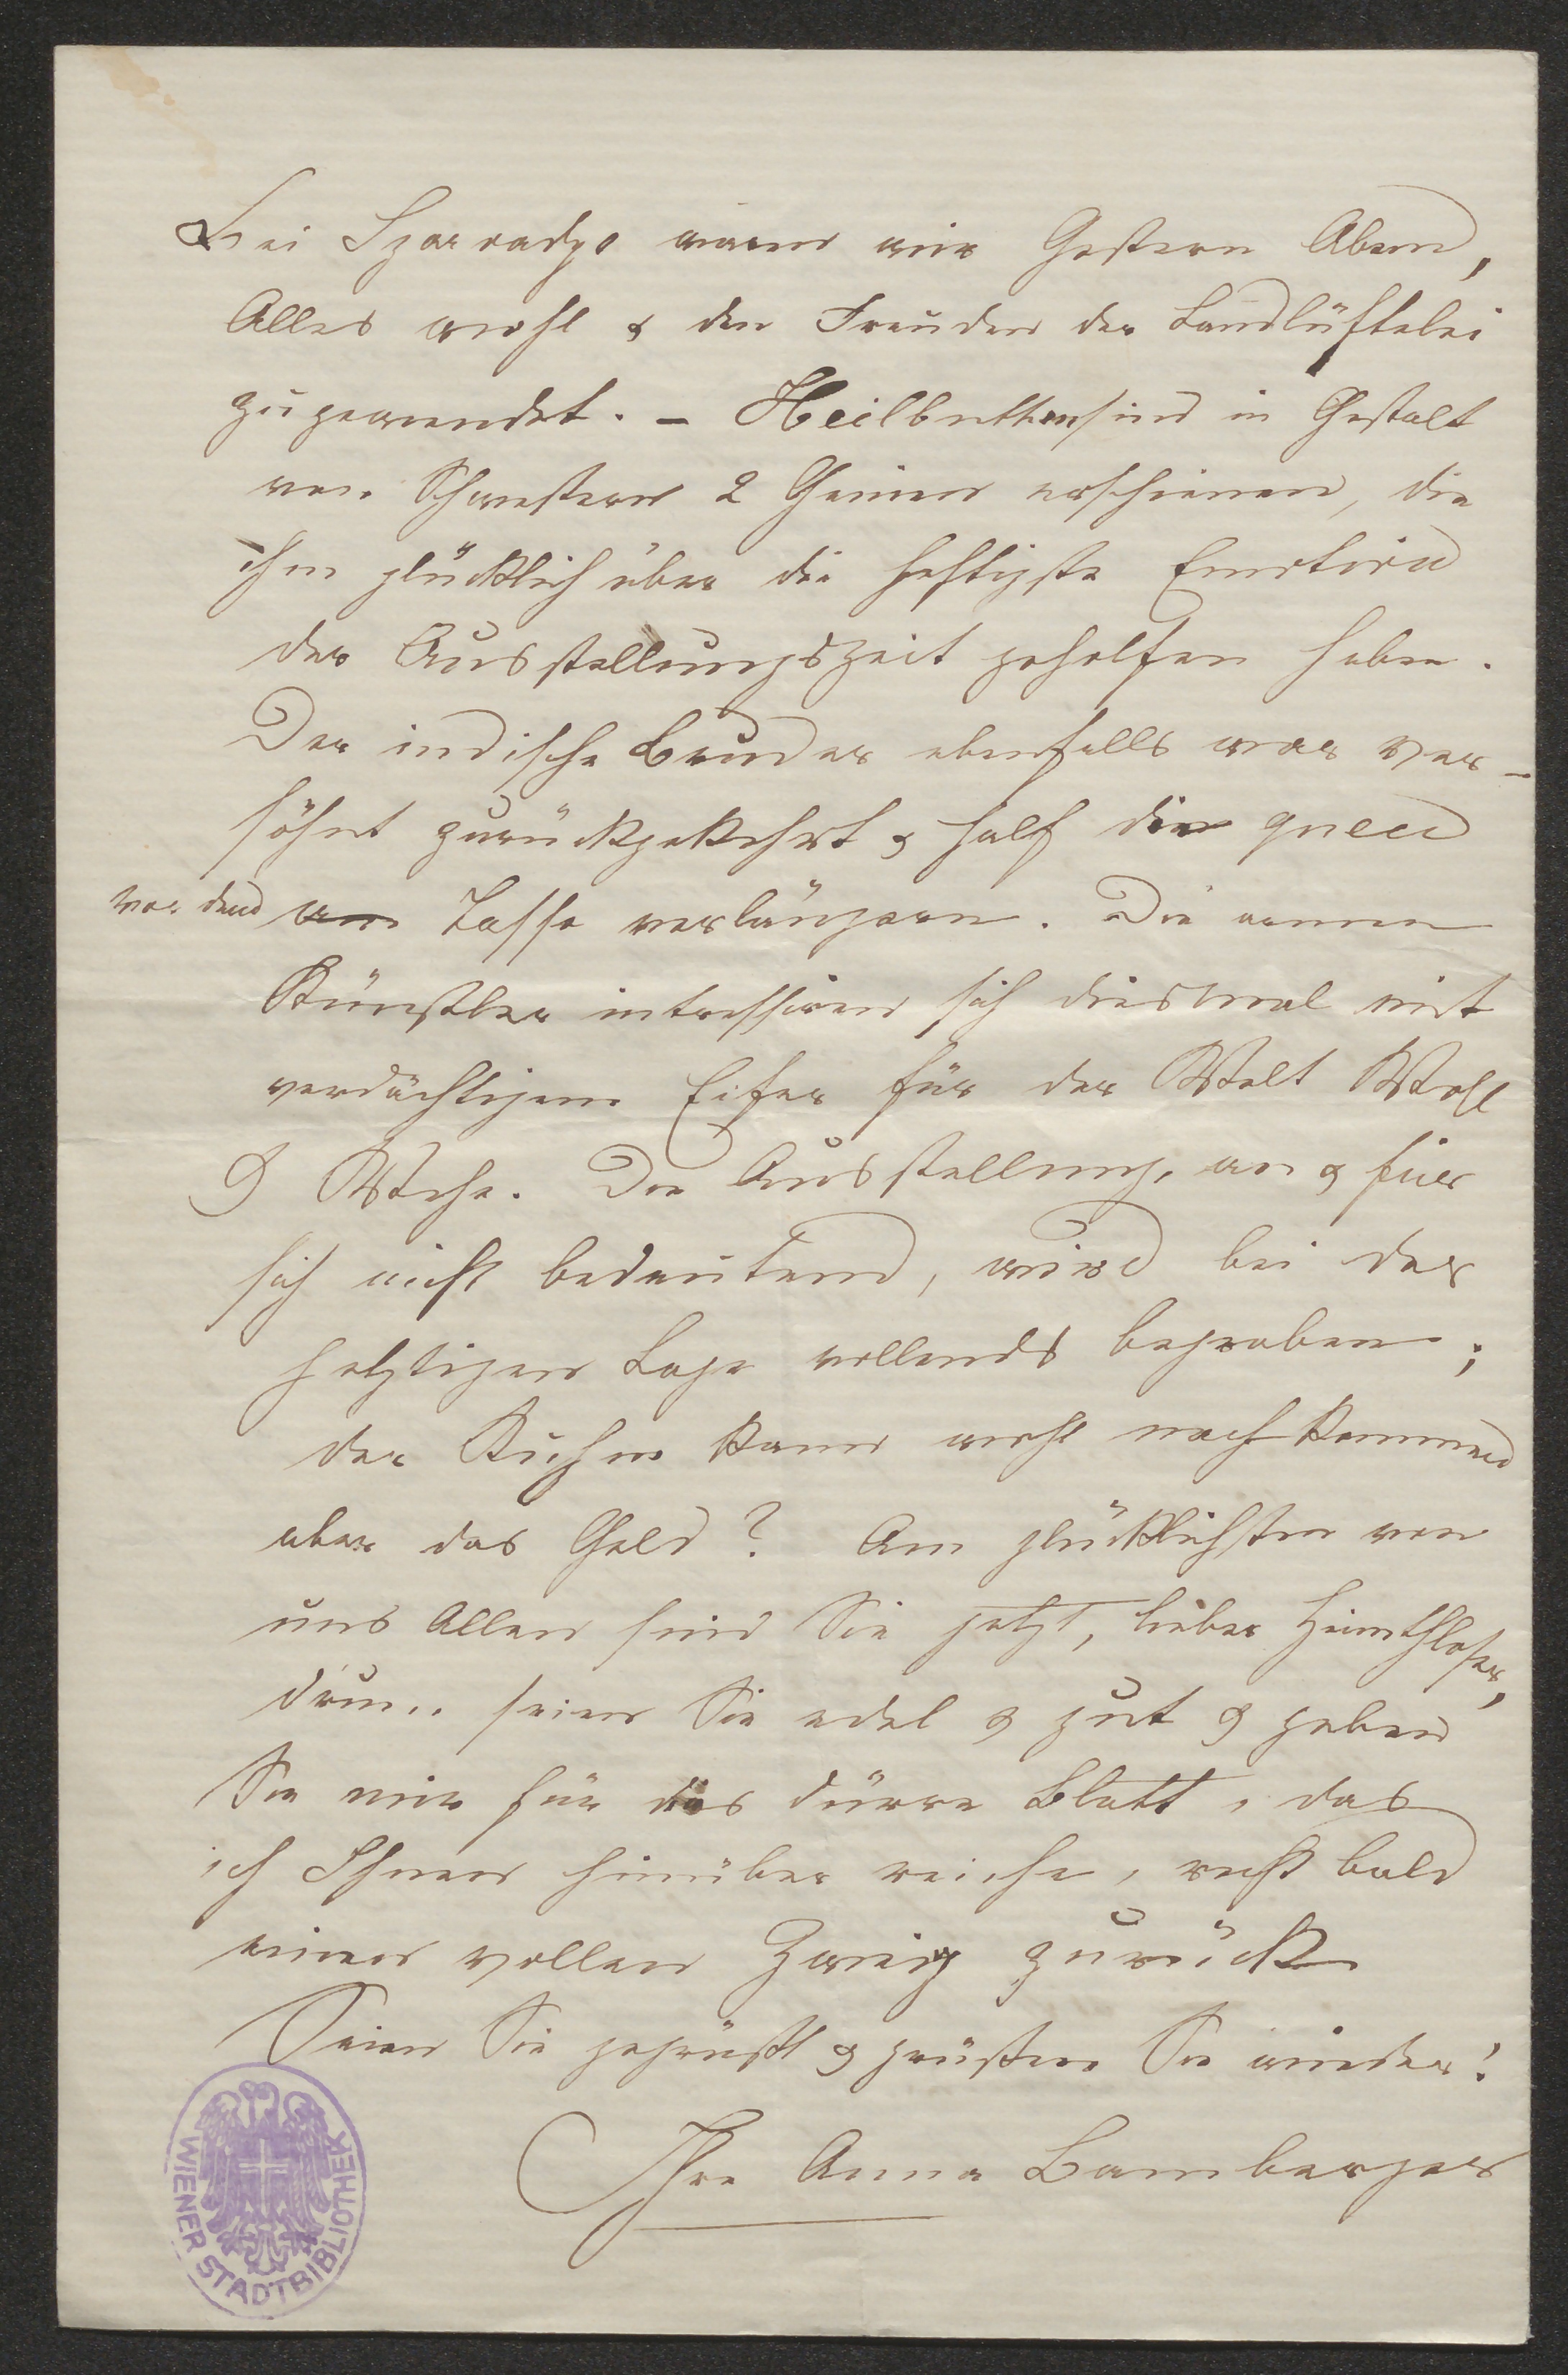 Bei Szarvadys waren wir Gestern Abend,
Alles wohl & den Freuden der Landlüftelei
zugewendet. – Heilbuthen sind in Gestalt
von Schwestern 2 Genien erschienen, die
ihm glücklich über die heftigste Emotion
der Ausstellungszeit geholfen haben.
Der indische Bruder ebenfalls war ver-
söhnt zurückgekehrt & half die queue
vor dem Tasso verlängern. Die armen
Künstler intressiren sich diesmal mit
verdächtigem Eifer für der Welt Wohl
& Wehe. Die Ausstellung, an & für
sich nicht bedeutend, wird bei der
jetztigen Lage vollends begraben;
der Ruhm kann wohl nach kommen
aber das Geld? Am glücklichsten von
uns Allen sind Sie jetzt, lieber Heimathloser,
drum seien Sie edel & gut & geben
Sie mir für das dürre Blatt, das
ich Ihnen hinüber reiche, recht bald
einen vollen Zweig zurück
Seien Sie gegrüßt & grüßen Sie wieder!
Ihre Anna Bamberger
WIENER STADTBIBLIOTHEK